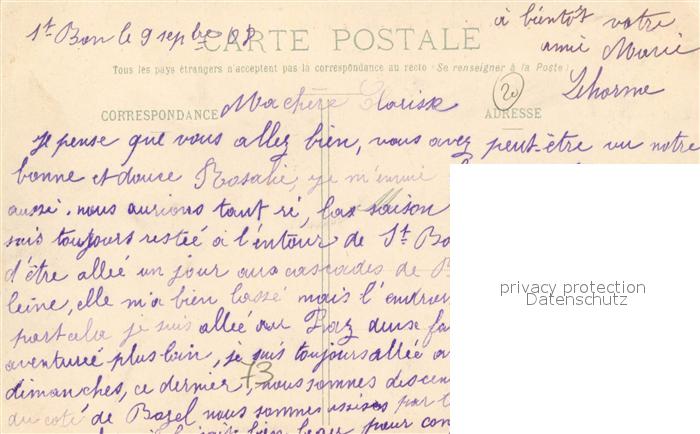 St Bon le 9 sepbre 07
à bientôt votre
amie Marie
Lhorme
CARTE POSTALE
Tous les pays étrangers n'acceptent pas la correspondance au recto (Se renseigner à la Poste)
20
CORRESPONDANCE
ADRESSE
Ma chère Clarisse
je pense que vous allez bien, vous avez peut-être vu notre
bonne et douce Rosalie, je m'ennui
aussi. nous aurions tant ri, las saison
suis toujours restée à l'entour de St Bo
d'être allée un jour aux cascades de B
leine, elle m'a bien lassé mais l'endroi
part cela je suis allée au Praz
aventurée plus loin, je suis toujours allée a
dimanches, ce dernier, nous sommes descen
73
du coté de Bozel nous sommes assises par
bien pour con
privacy protection
Datenschutz